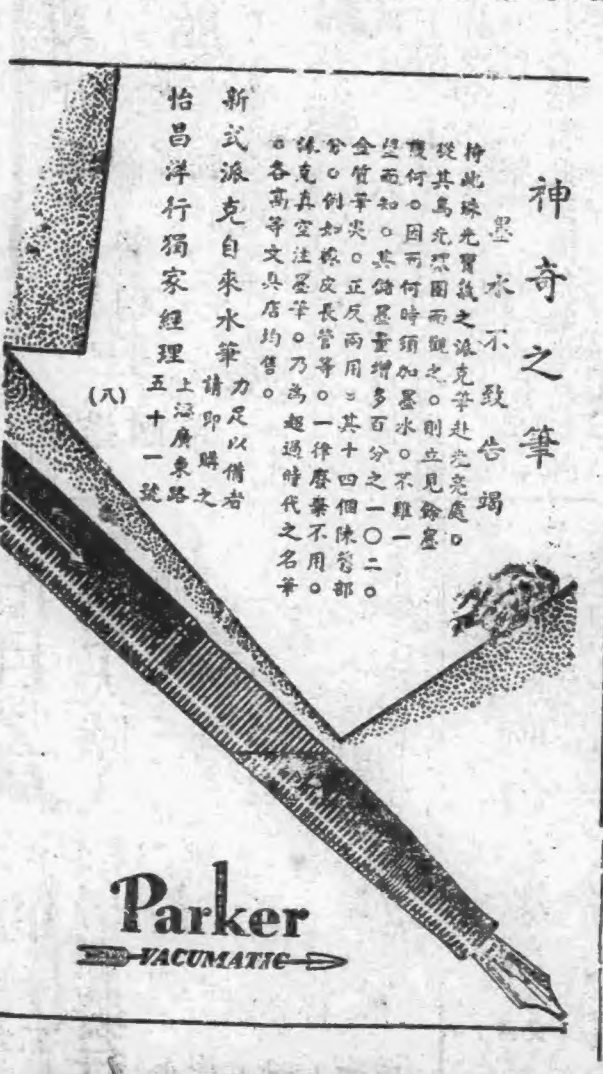 神奇之筆
墨水不致告竭
持此珠光寶氣之派克筆赴光亮處。
從其烏光環圈而觀之。則立見餘墨
幾何。因而何時須加墨水。不難一
望而知。其儲墨量增多百分之一〇二。
金質筆尖。正反兩用。其十四個陳舊部
份。例如橡皮長管等。一律廢棄不用。
派克真空注墨筆。乃為超過時代之名筆
。各高等文具店均售。
新式派克自來水筆 力足以備者
請即購之
怡昌洋行獨家經理 上海廣東路
五十一號
(八)
Parker
VACUMATIC